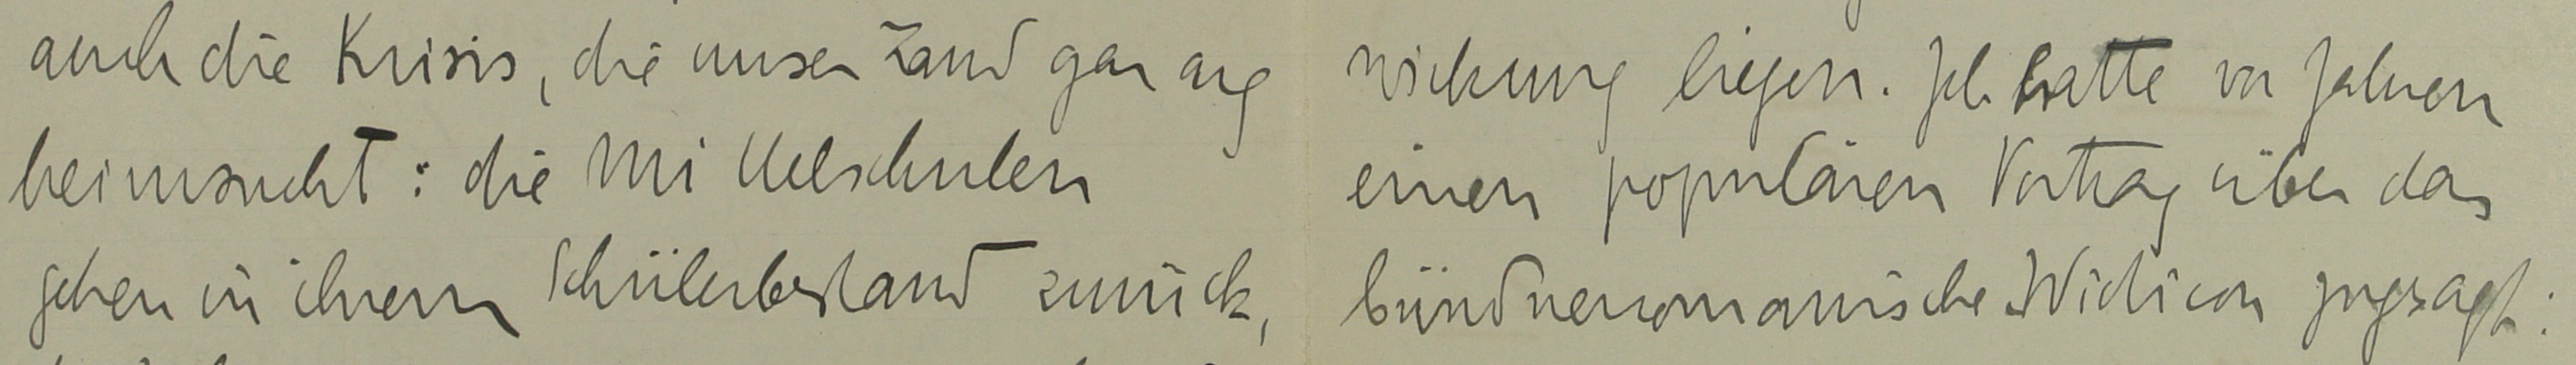 auch die Krisis, die unser Land gar arg
heimsucht: die Mittelschulen
gehen in ihrem Schülerbestand zurück,
wickung liegen. Ich hatte vor Jahren
einen populären Vortrag über das
bündnerromanische Dicziunari zugesagt: